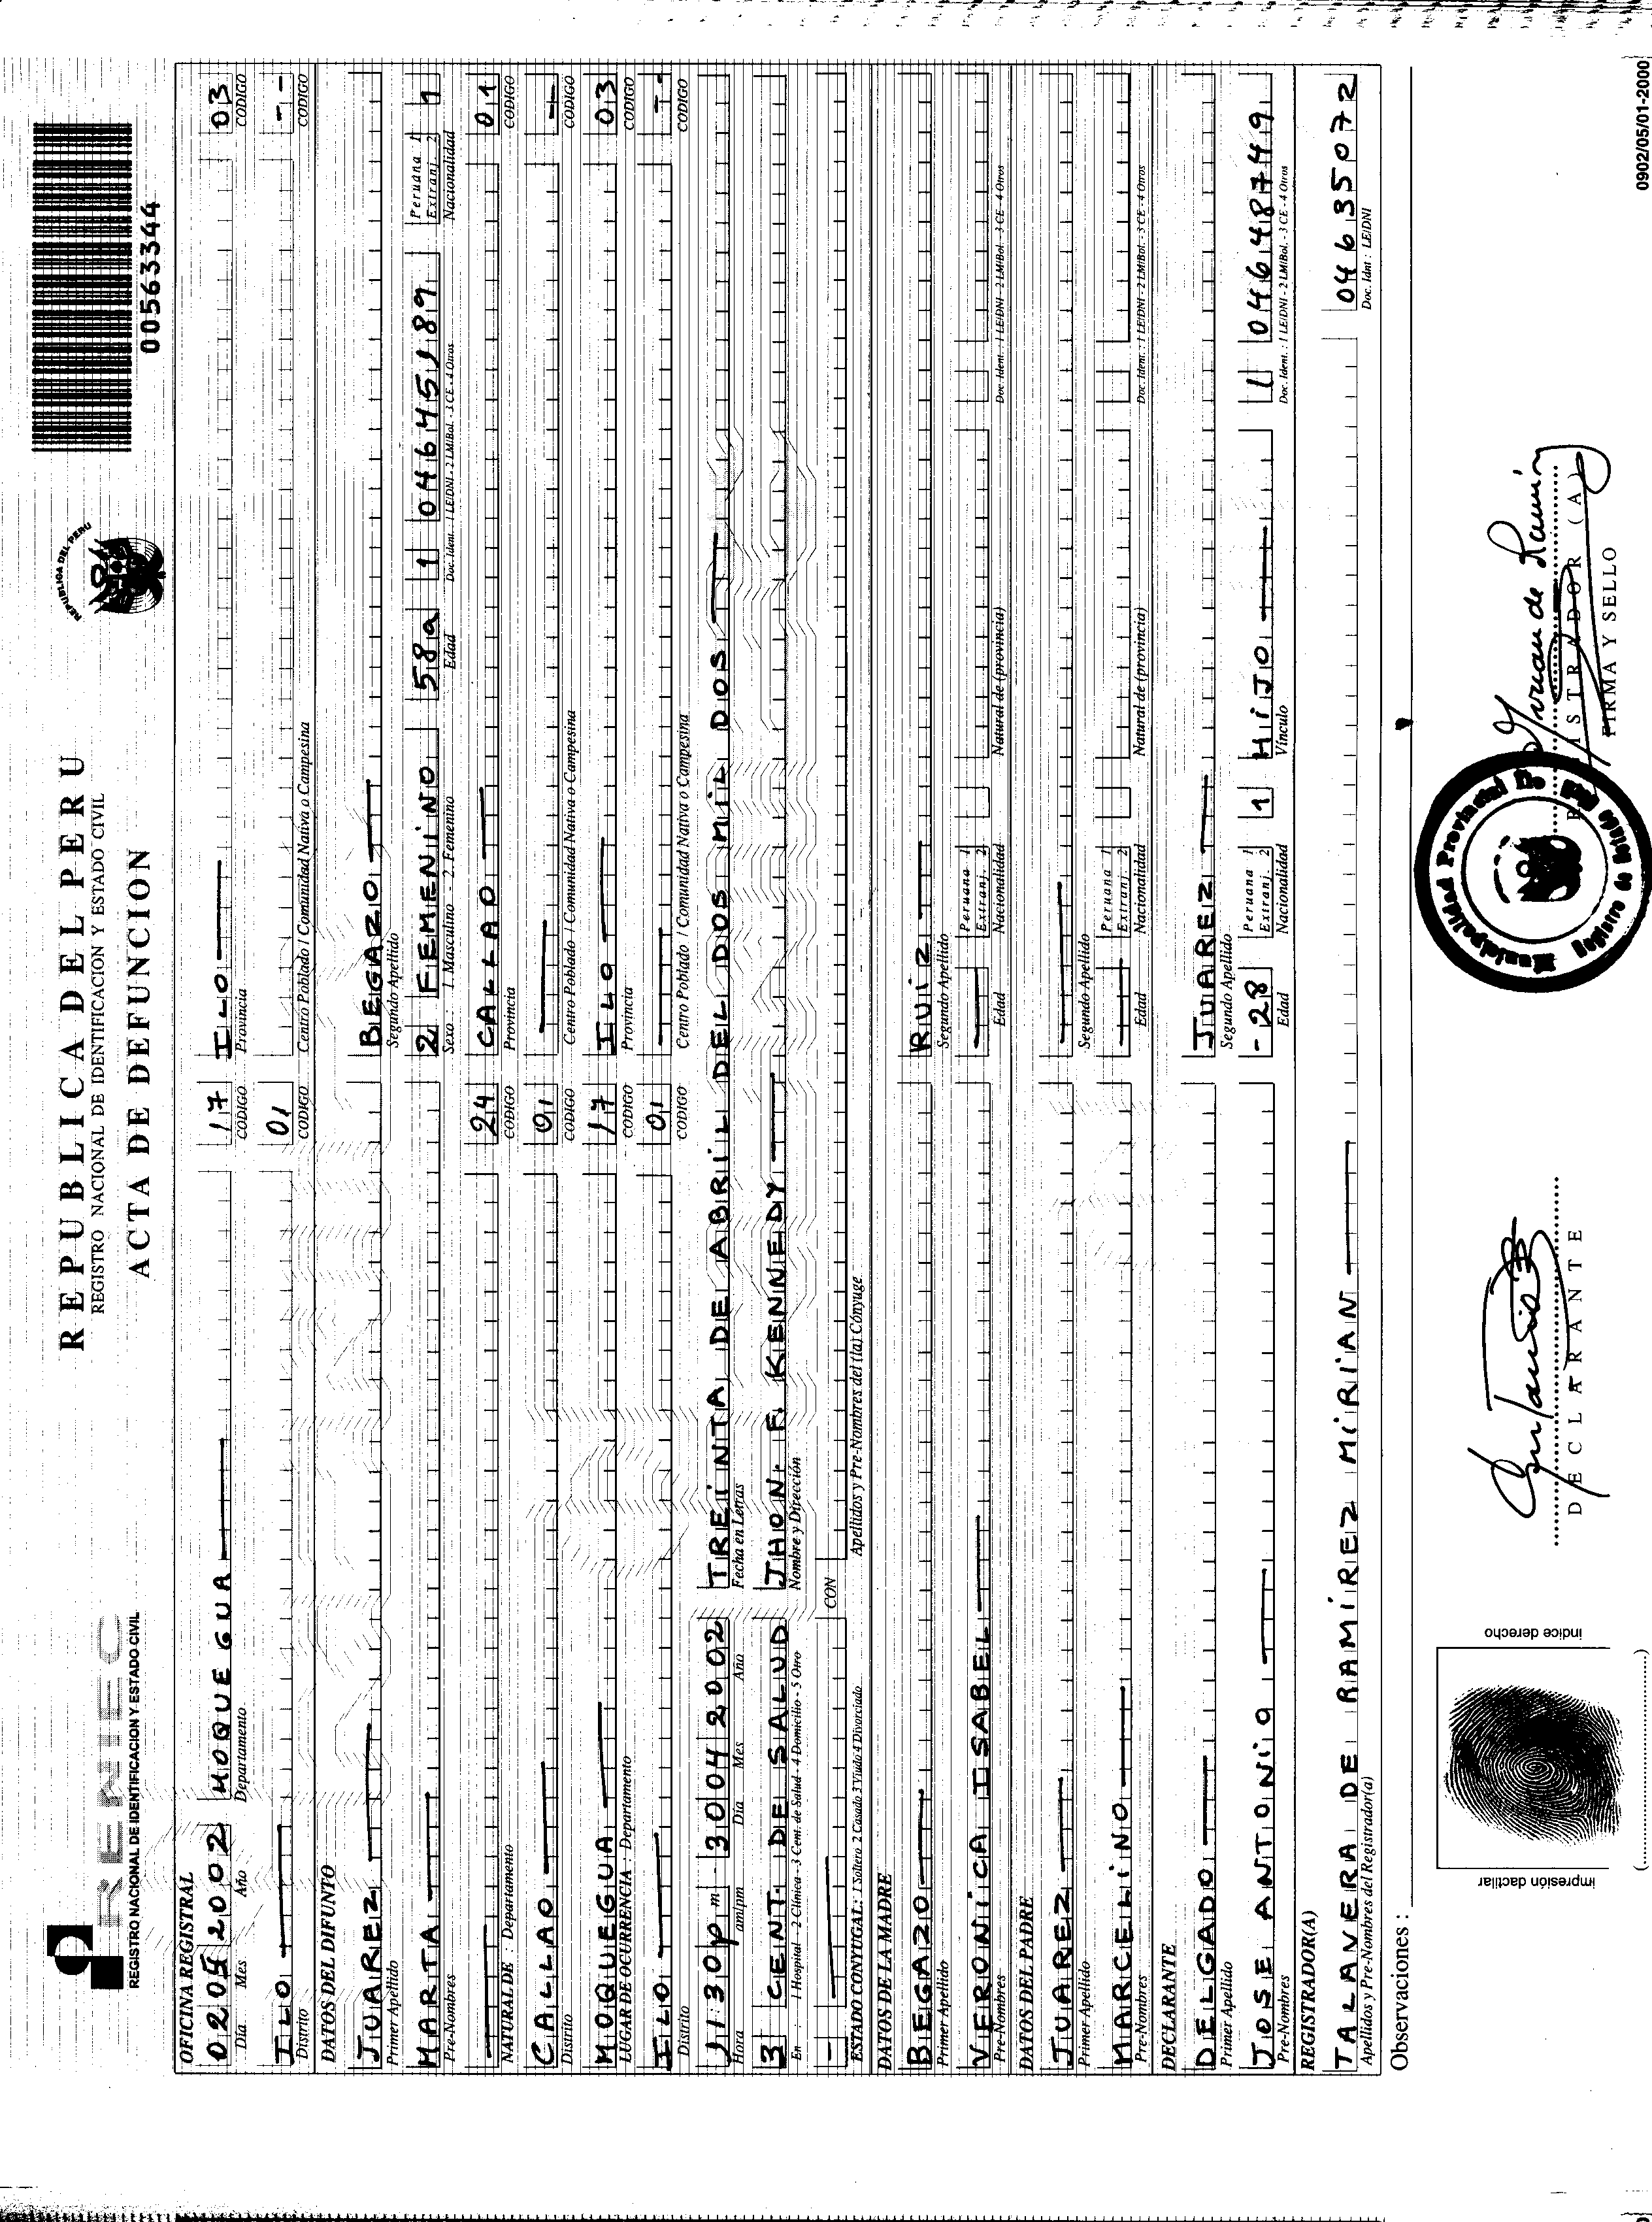 RENIEC
REGISTRO NACIONAL DE IDENTIFICACION Y ESTADO CIVIL
REPUBLICA DEL PERU
REGISTRO NACIONAL DE IDENTIFICACION Y ESTADO CIVIL
ACTA DE DEFUNCION
REPUBLICA DEL PERU
00563344
OFICINA REGISTRAL
02 05 2002 MOQUEGUA 17 ILO 03
Día Mes Año Departamento CODIGO Provincia CODIGO
ILO 01 --
Distrito CODIGO Centro Poblado / Comunidad Nativa o Campesina CODIGO
DATOS DEL DIFUNTO
JUAREZ BEGAZO
Primer Apellido Segundo Apellido
MARTA 2 FEMENINO 58a 1 04645189 Peruana 1 Extranj. 2 1
Pre-Nombres Sexo : 1. Masculino - 2. Femenino Edad Doc. Ident. : 1 LE/DNI - 2 LM/Bol. - 3 CE - 4 Otros Nacionalidad
24 CALLAO 01
NATURAL DE : Departamento CODIGO Provincia CODIGO
CALLAO 01 —
Distrito CODIGO Centro Poblado / Comunidad Nativa o Campesina CODIGO
MOQUEGUA 17 ILO 03
LUGAR DE OCURRENCIA : Departamento CODIGO Provincia CODIGO
ILO 01 --
Distrito CODIGO Centro Poblado / Comunidad Nativa o Campesina CODIGO
11:30 pm 30 04 2002 TREINTA DE ABRIL DEL DOS MIL DOS
Hora am/pm Día Mes Año Fecha en Letras
3 CENT. DE SALUD JHON. F. KENNEDY
En : 1 Hospital - 2 Clínica - 3 Cent. de Salud - 4 Domicilio - 5 Otro Nombre y Dirección
- — CON
ESTADO CONYUGAL: 1 Soltero 2 Casado 3 Viudo 4 Divorciado Apellidos y Pre-Nombres del (la) Cónyuge
DATOS DE LA MADRE
BEGAZO RUIZ
Primer Apellido Segundo Apellido
VERONICA ISABEL — Peruana 1 Extranj. 2
Pre-Nombres Edad Nacionalidad Natural de (provincia) Doc. Ident. : 1 LE/DNI - 2 LM/Bol. - 3 CE - 4 Otros
DATOS DEL PADRE
JUAREZ —
Primer Apellido Segundo Apellido
MARCELINO — Peruana 1 Extranj. 2
Pre-Nombres Edad Nacionalidad Natural de (provincia) Doc. Ident. : 1 LE/DNI - 2 LM/Bol. - 3 CE - 4 Otros
DECLARANTE
DELGADO JUAREZ
Primer Apellido Segundo Apellido
JOSE ANTONIO -28 Peruana 1 Extranj. 2 1 HIJO 1 04648749
Pre-Nombres Edad Nacionalidad Vínculo Doc. Ident. : 1 LE/DNI - 2 LM/Bol. - 3 CE - 4 Otros
REGISTRADOR(A)
TALAVERA DE RAMIREZ MIRIAN 04635072
Apellidos y Pre-Nombres del Registrador(a) Doc. Idnt : LE/DNI
Observaciones :
impresión dactilar
indice derecho
DECLARANTE
Municipalidad Provincial De
REGISTRADOR (A)
FIRMA Y SELLO
0902/05/01-2000